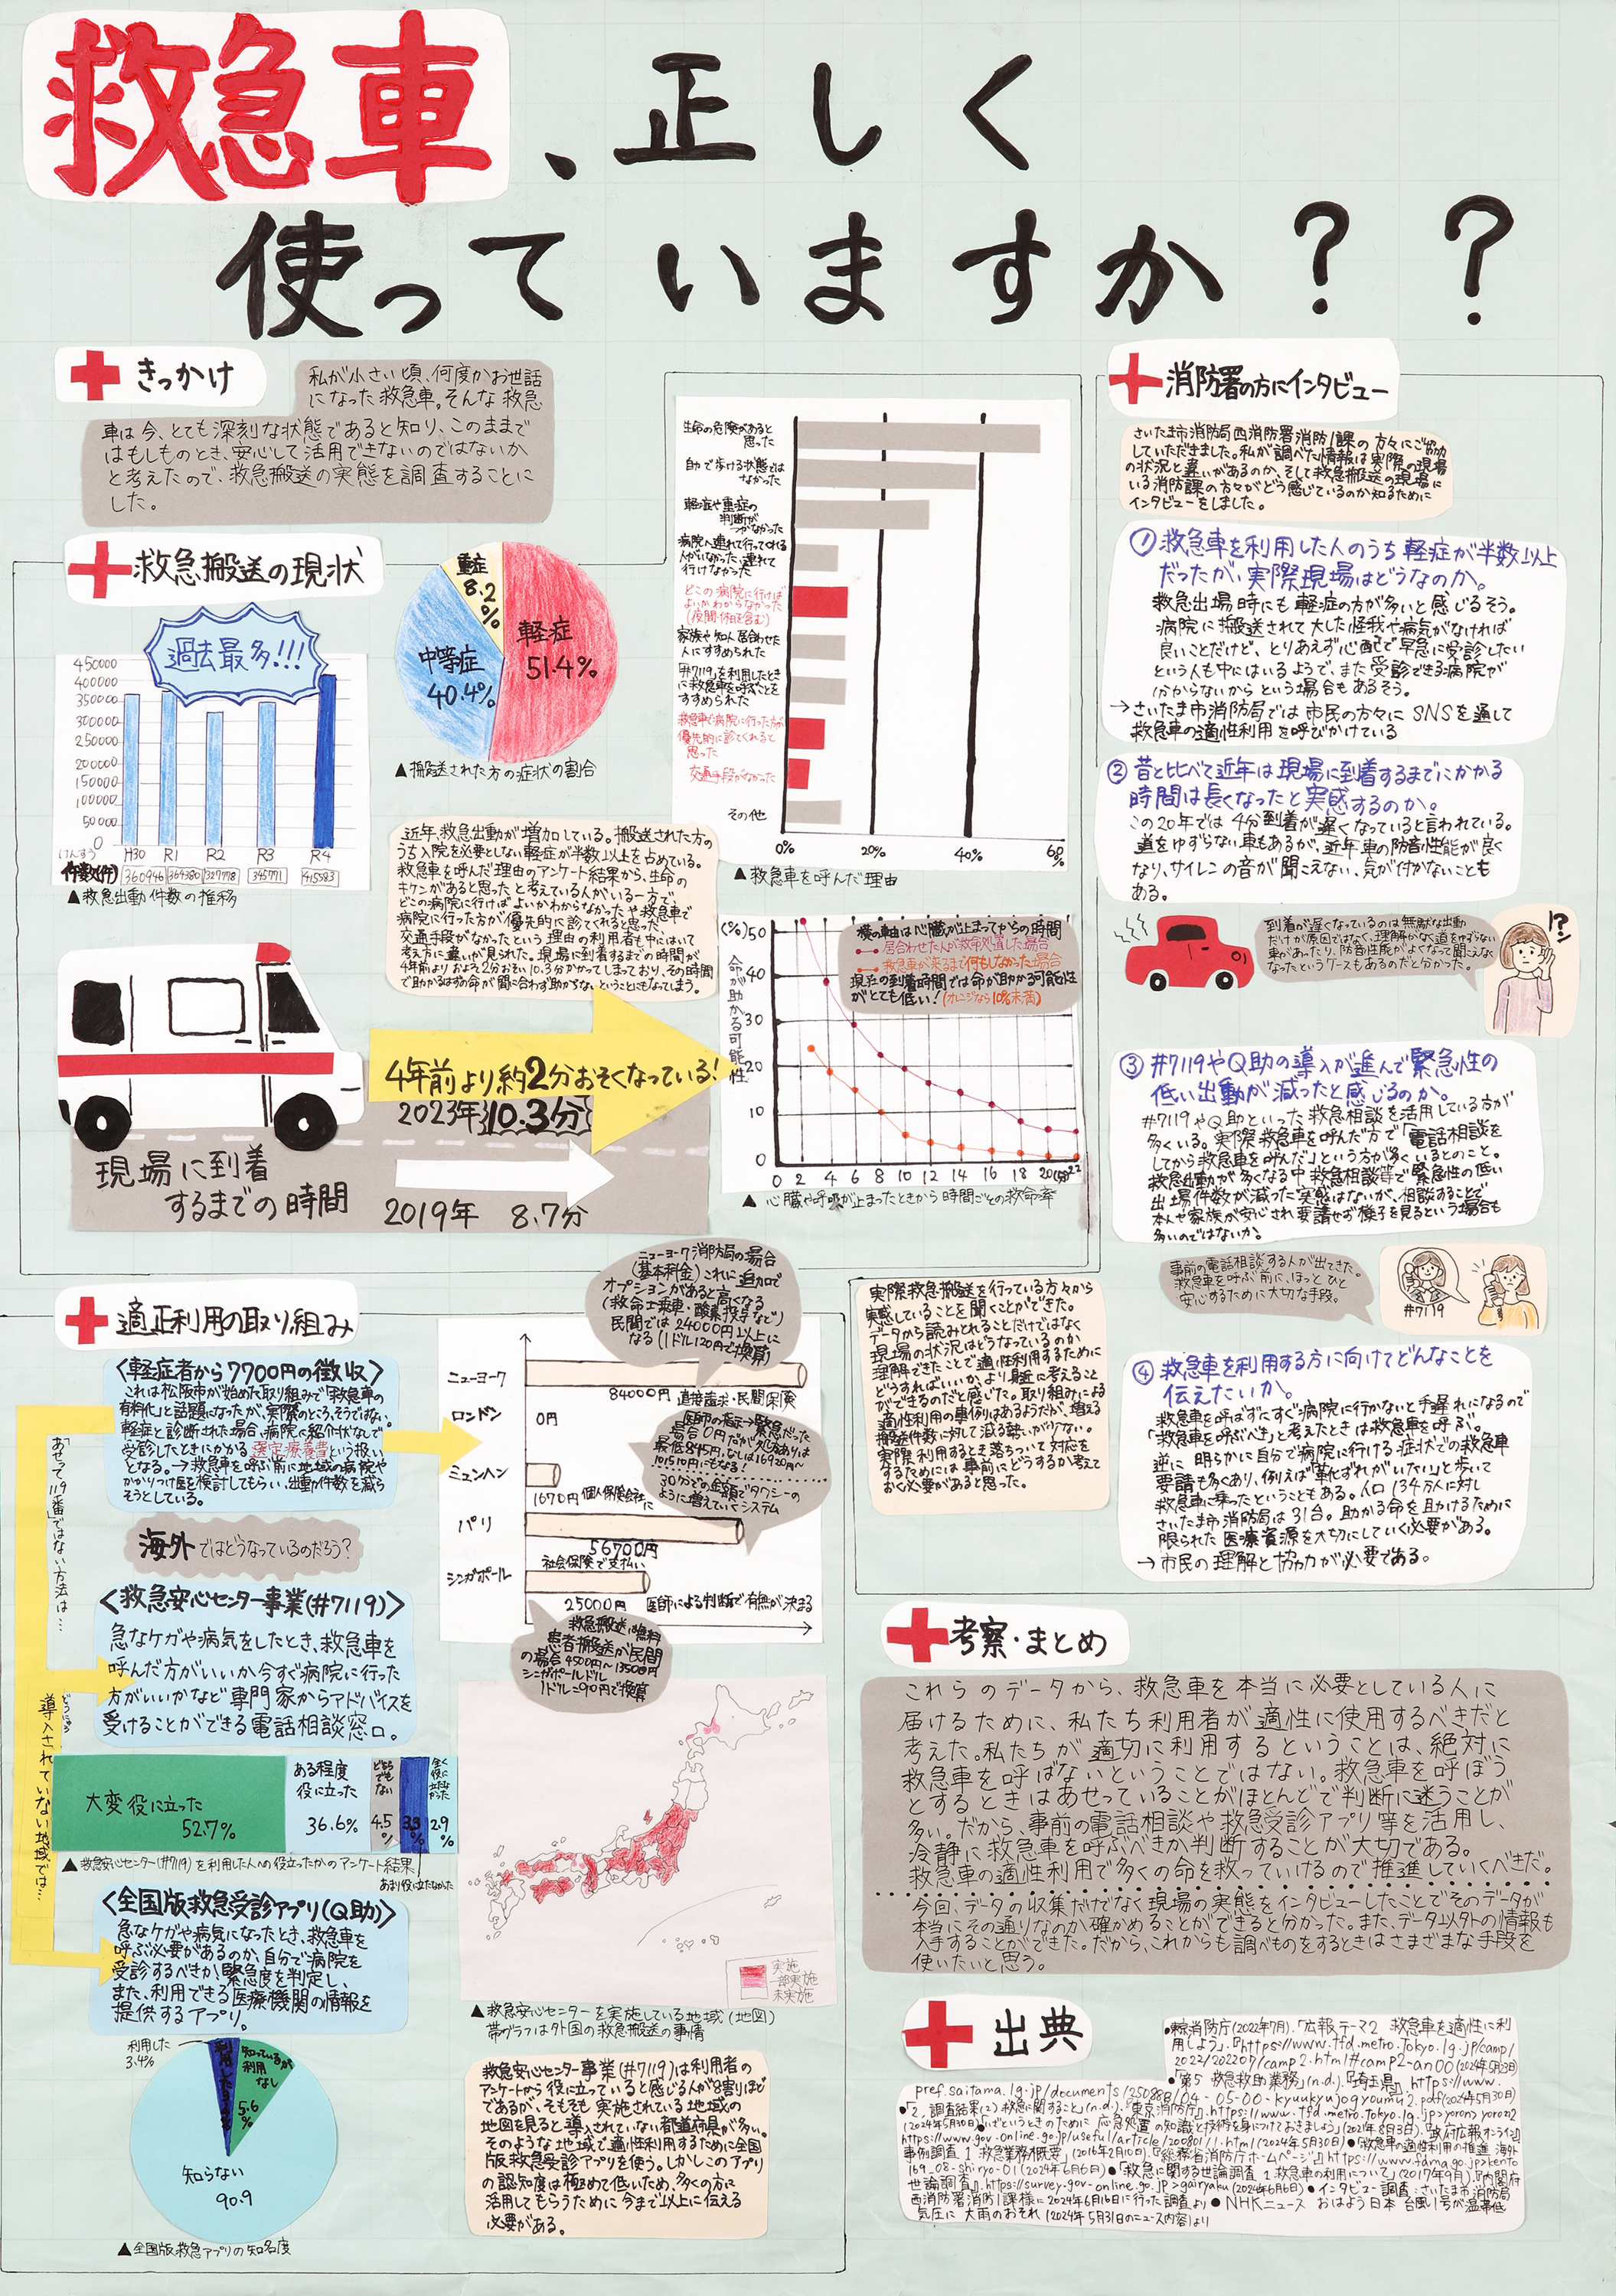 救急車、正しく
使っていますか？？
きっかけ
私が小さい頃、何度かお世話
になった救急車。そんな救急
車は今、とても深刻な状態であると知り、このままで
はもしものとき、安心して活用できないのではないか
と考えたので、救急搬送の実態を調査することに
した。
救急搬送の現状
過去最多!!!
450000
400000
350000
300000
250000
200000
150000
100000
50000
0
H30 R1 R2 R3 R4
件数(件) 360946 364380 327778 345771 415583
▲救急出動件数の推移
重症
8.2%
軽症
51.4%
中等症
40.4%
▲搬送された方の症状の割合
近年、救急出動が増加している。搬送された方の
うち入院を必要としない軽症が半数以上を占めている。
救急車を呼んだ理由のアンケート結果から、生命の
キケンがあると思ったと考えている人がいる一方で、
どこの病院に行けばよいかわからなかったや救急車で
病院に行った方が優先的に診てくれると思った、
交通手段がなかったという理由の利用者も中にはいて
考え方に違いが見られた。現場に到着するまでの時間が
4年前よりおよそ2分おそい10.3分かかってしまっており、その時間
で助かるはずの命が間に合わず助からないということにもなってしまう。
生命の危険があると
思った
自力で歩ける状態では
なかった
軽症や重症の
判断が
つかなかった
病院へ連れて行ってくれる
人がいなかった、連れて
行けなかった
どこの病院に行けば
よいかわからなかった
(夜間・休日を含む)
家族や知人、居合わせた
人にすすめられた
「#7119」を利用したとき
に救急車を呼ぶことを
すすめられた
救急車で病院に行った方が
優先的に診てくれると
思った
交通手段がなかった
その他
0% 20% 40% 60%
▲救急車を呼んだ理由
4年前より約2分おそくなっている!
2023年 10.3分
現場に到着
するまでの時間
2019年 8.7分
(%)
50
40
30
20
10
0
命が助かる可能性
横の軸は心臓が止まってからの時間
居合わせた人が救命処置した場合
救急車が来るまで何もしなかった場合
現在の到着時間では命が助かる可能性
がとても低い!(オレンジなら10%未満)
0 2 4 6 8 10 12 14 16 18 20(分)22
▲心臓や呼吸が止まったときから時間ごとの救命率
消防署の方にインタビュー
さいたま市消防局西消防署消防1課の方々にご協力
していただきました。私が調べた情報は実際の現場
の状況と違いがあるのか、そして救急搬送の現場に
いる消防課の方々がどう感じているのか知るために
インタビューをしました。
①救急車を利用した人のうち軽症が半数以上
だったが、実際現場はどうなのか。
救急出場時にも軽症の方が多いと感じるそう。
病院に搬送されて大した怪我や病気がなければ
良いことだけど、とりあえず心配で早急に受診したい
という人も中にはいるようで、また受診できる病院が
分からないからという場合もあるそう。
→さいたま市消防局では市民の方々にSNSを通して
救急車の適性利用を呼びかけている
②昔と比べて近年は現場に到着するまでにかかる
時間は長くなったと実感するのか。
この20年では4分到着が遅くなっていると言われている。
道をゆずらない車もあるが、近年車の防音性能が良く
なり、サイレンの音が聞こえない、気が付かないことも
ある。
到着が遅くなっているのは無駄な出動
だけが原因ではなく、理解がなく道をゆずらない
車があったり、防音性能がよくなって聞こえなく
なったというケースもあるのだと分かった。
!?
③#7119やQ助の導入が進んで緊急性の
低い出動が減ったと感じるのか。
#7119やQ助といった救急相談を活用している方が
多くいる。実際救急車を呼んだ方で「電話相談を
してから救急車を呼んだ」という方が多くいるとのこと。
救急出動が多くなる中、救急相談等で緊急性の低い
出場件数が減った実感はないが、相談することで
本人や家族が安心され要請せず様子を見るという場合も
多いのではないか。
事前の電話相談する人が出てきた。
救急車を呼ぶ前に、ほっとひと
安心するために大切な手段。
#7119
④救急車を利用する方に向けてどんなことを
伝えたいか。
救急車を呼ばずにすぐ病院に行かないと手遅れになるので
「救急車を呼ぶべき」と考えたときは救急車を呼ぶ。
逆に明らかに自分で病院に行ける症状での救急車
要請も多くあり、例えば「靴ずれがいたい」と歩いて
救急車に乗ったということもある。人口134万人に対し
さいたま市消防局は31台。助かる命を助けるために
限られた医療資源を大切にしていく必要がある。
→市民の理解と協力が必要である。
実際救急搬送を行っている方々から
実感していることを聞くことができた。
データから読みとれることだけではなく
現場の状況はどうなっているのか
理解できたことで適性利用するために
どうすればいいか、より身近に考えること
ができるのだと感じた。取り組みによる
適性利用の事例はあるようだが、増える
搬送件数に対して減る勢いが少ない。
実際利用するとき落ちついて対応を
するためには事前にどうするか考えて
おく必要があると思った。
適正利用の取り組み
〈軽症者から7700円の徴収〉
これは松阪市が始めた取り組みで「救急車の
有料化」と話題になったが、実際のところ、そうではない。
軽症と診断された場合、病院に紹介状なしで
受診したときにかかる選定療養費という扱い
となる。→救急車を呼ぶ前に地域の病院や
かかりつけ医を検討してもらい、出動件数を減ら
そうとしている。
あせって119番ではない方法は…
導入されていない地域では…
海外ではどうなっているのだろう?
〈救急安心センター事業(#7119)〉
急なケガや病気をしたとき、救急車を
呼んだ方がいいか今すぐ病院に行った
方がいいかなど専門家からアドバイスを
受けることができる電話相談窓口。
大変役に立った
52.7%
ある程度
役に立った
36.6%
どちらでもない
4.5%
3.3%
全く役に立たなかった
2.9%
▲救急安心センター(#7119)を利用した人への役立ったかのアンケート結果
あまり役に立たなかった
〈全国版救急受診アプリ(Q助)〉
急なケガや病気になったとき、救急車を
呼ぶ必要があるのか、自分で病院を
受診するべきか、緊急度を判定し、
また、利用できる医療機関の情報を
提供するアプリ。
利用した
3.4%
知っているが
利用なし
5.6%
知らない
90.9
▲全国版救急アプリの知名度
ニューヨーク消防局の場合
(基本料金)これに追加で
オプションがあると高くなる
(救命士乗車・酸素投与など)
民間では24000円以上に
なる(1ドル120円で換算)
ニューヨーク
84000円 直接請求・民間保険
ロンドン
0円
ミュンヘン
1670円 個人保険会社に
パリ
56700円
社会保険で支払い
シンガポール
25000円 医師による判断で有無が決まる
医師の指示→緊急だった
場合0円だが処方ありは
最低845円、なしは16920円〜
101510円にもなる!
30分ごとの金額でタクシーの
ように増えていくシステム
救急搬送は無料
患者搬送が民間
の場合4500円〜13500円
シンガポールドル
1ドル=90円で換算
実施
一部実施
未実施
▲救急安心センターを実施している地域(地図)
帯グラフは外国の救急搬送の事情
救急安心センター事業(#7119)は利用者の
アンケートから役に立っていると感じる人が8割りほど
であるが、そもそも実施されている地域の
地図を見ると導入されていない都道府県が多い。
そのような地域で適性利用するために全国
版救急受診アプリを使う。しかしこのアプリ
の認知度は極めて低いため、多くの方に
活用してもらうために今まで以上に伝える
必要がある。
考察・まとめ
これらのデータから、救急車を本当に必要としている人に
届けるために、私たち利用者が適性に使用するべきだと
考えた。私たちが適切に利用するということは、絶対に
救急車を呼ばないということではない。救急車を呼ぼう
とするときはあせっていることがほとんどで判断に迷うことが
多い。だから、事前の電話相談や救急受診アプリ等を活用し、
冷静に救急車を呼ぶべきか判断することが大切である。
救急車の適性利用で多くの命を救っていけるので推進していくべきだ。
今回、データの収集だけでなく現場の実態をインタビューしたことでそのデータが
本当にその通りなのか確かめることができると分かった。また、データ以外の情報も
入手することができた。だから、これからも調べものをするときはさまざまな手段を
使いたいと思う。
出典
●東京消防庁(2022年7月).「広報テーマ2 救急車を適性に利
用しよう」.『https://www.tfd.metro.tokyo.lg.jp/camp/
2022/202207/camp2.html#camp2-an00(2024年5月23日)
●「第5 救急救助業務」(n.d.).『埼玉県』 https://www.
pref.saitama.lg.jp/documents/250888/04-05-00-kyuukyuujogyoumu2.pdf(2024年5月30日)
●「2 調査結果(2) 救急に関すること」(n.d.).『東京消防庁』.https://www.tfd.metro.tokyo.lg.jp>yoron>yoron2
(2024年5月30日)●「いざというときのために 応急処置の知識と技術を身につけておきましょう」(2021年8月3日).『政府広報オンライン』
https://www.gov-online.go.jp/useful/article/200801/1.html(2024年5月30日)●「救急車の適性利用の推進 海外
事例調査 1 救急業務概要」(2016年2月10日).『総務省消防庁ホームページ』https://www.fdma.go.jp>kento
169_08-shiryo-01(2024年6月6日)●「救急に関する世論調査 1 救急車の利用について」(2017年9月).『内閣府
世論調査』.https://survey.gov-online.go.jp>gairyaku(2024年6月6日)●インタビュー調査:さいたま市消防局
西消防署消防1課様に2024年6月16日に行った調査より●NHKニュース おはよう日本 台風1号が温帯低
気圧に 大雨のおそれ(2024年5月31日のニュース内容)より